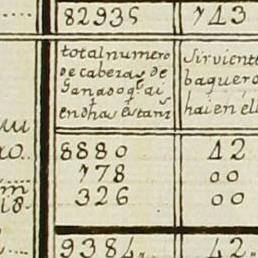 82935 743
total numero
de cabezas de
Ganado q̃. ai
en dhas estans
Sirviente
baquero
hai en el
8880 42
778 00
326 00
9384,, 42,,